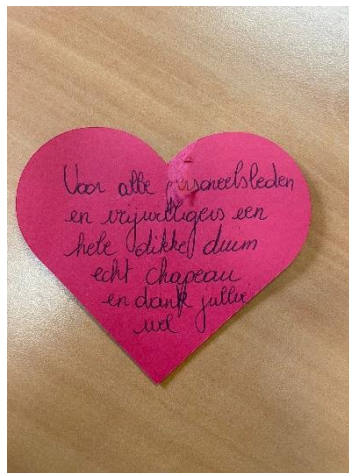 Voor alle personeelsleden
en vrijwilligers een
hele dikke duim
echt chapeau
en dank jullie
wel